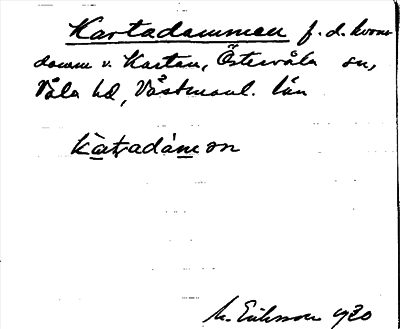 Kartadammen f. d. kvarn
damm v. Kartan, Östervåla sn,
Våla hd, Västmanl. län
kàrtadámən
M. Eriksson 1920